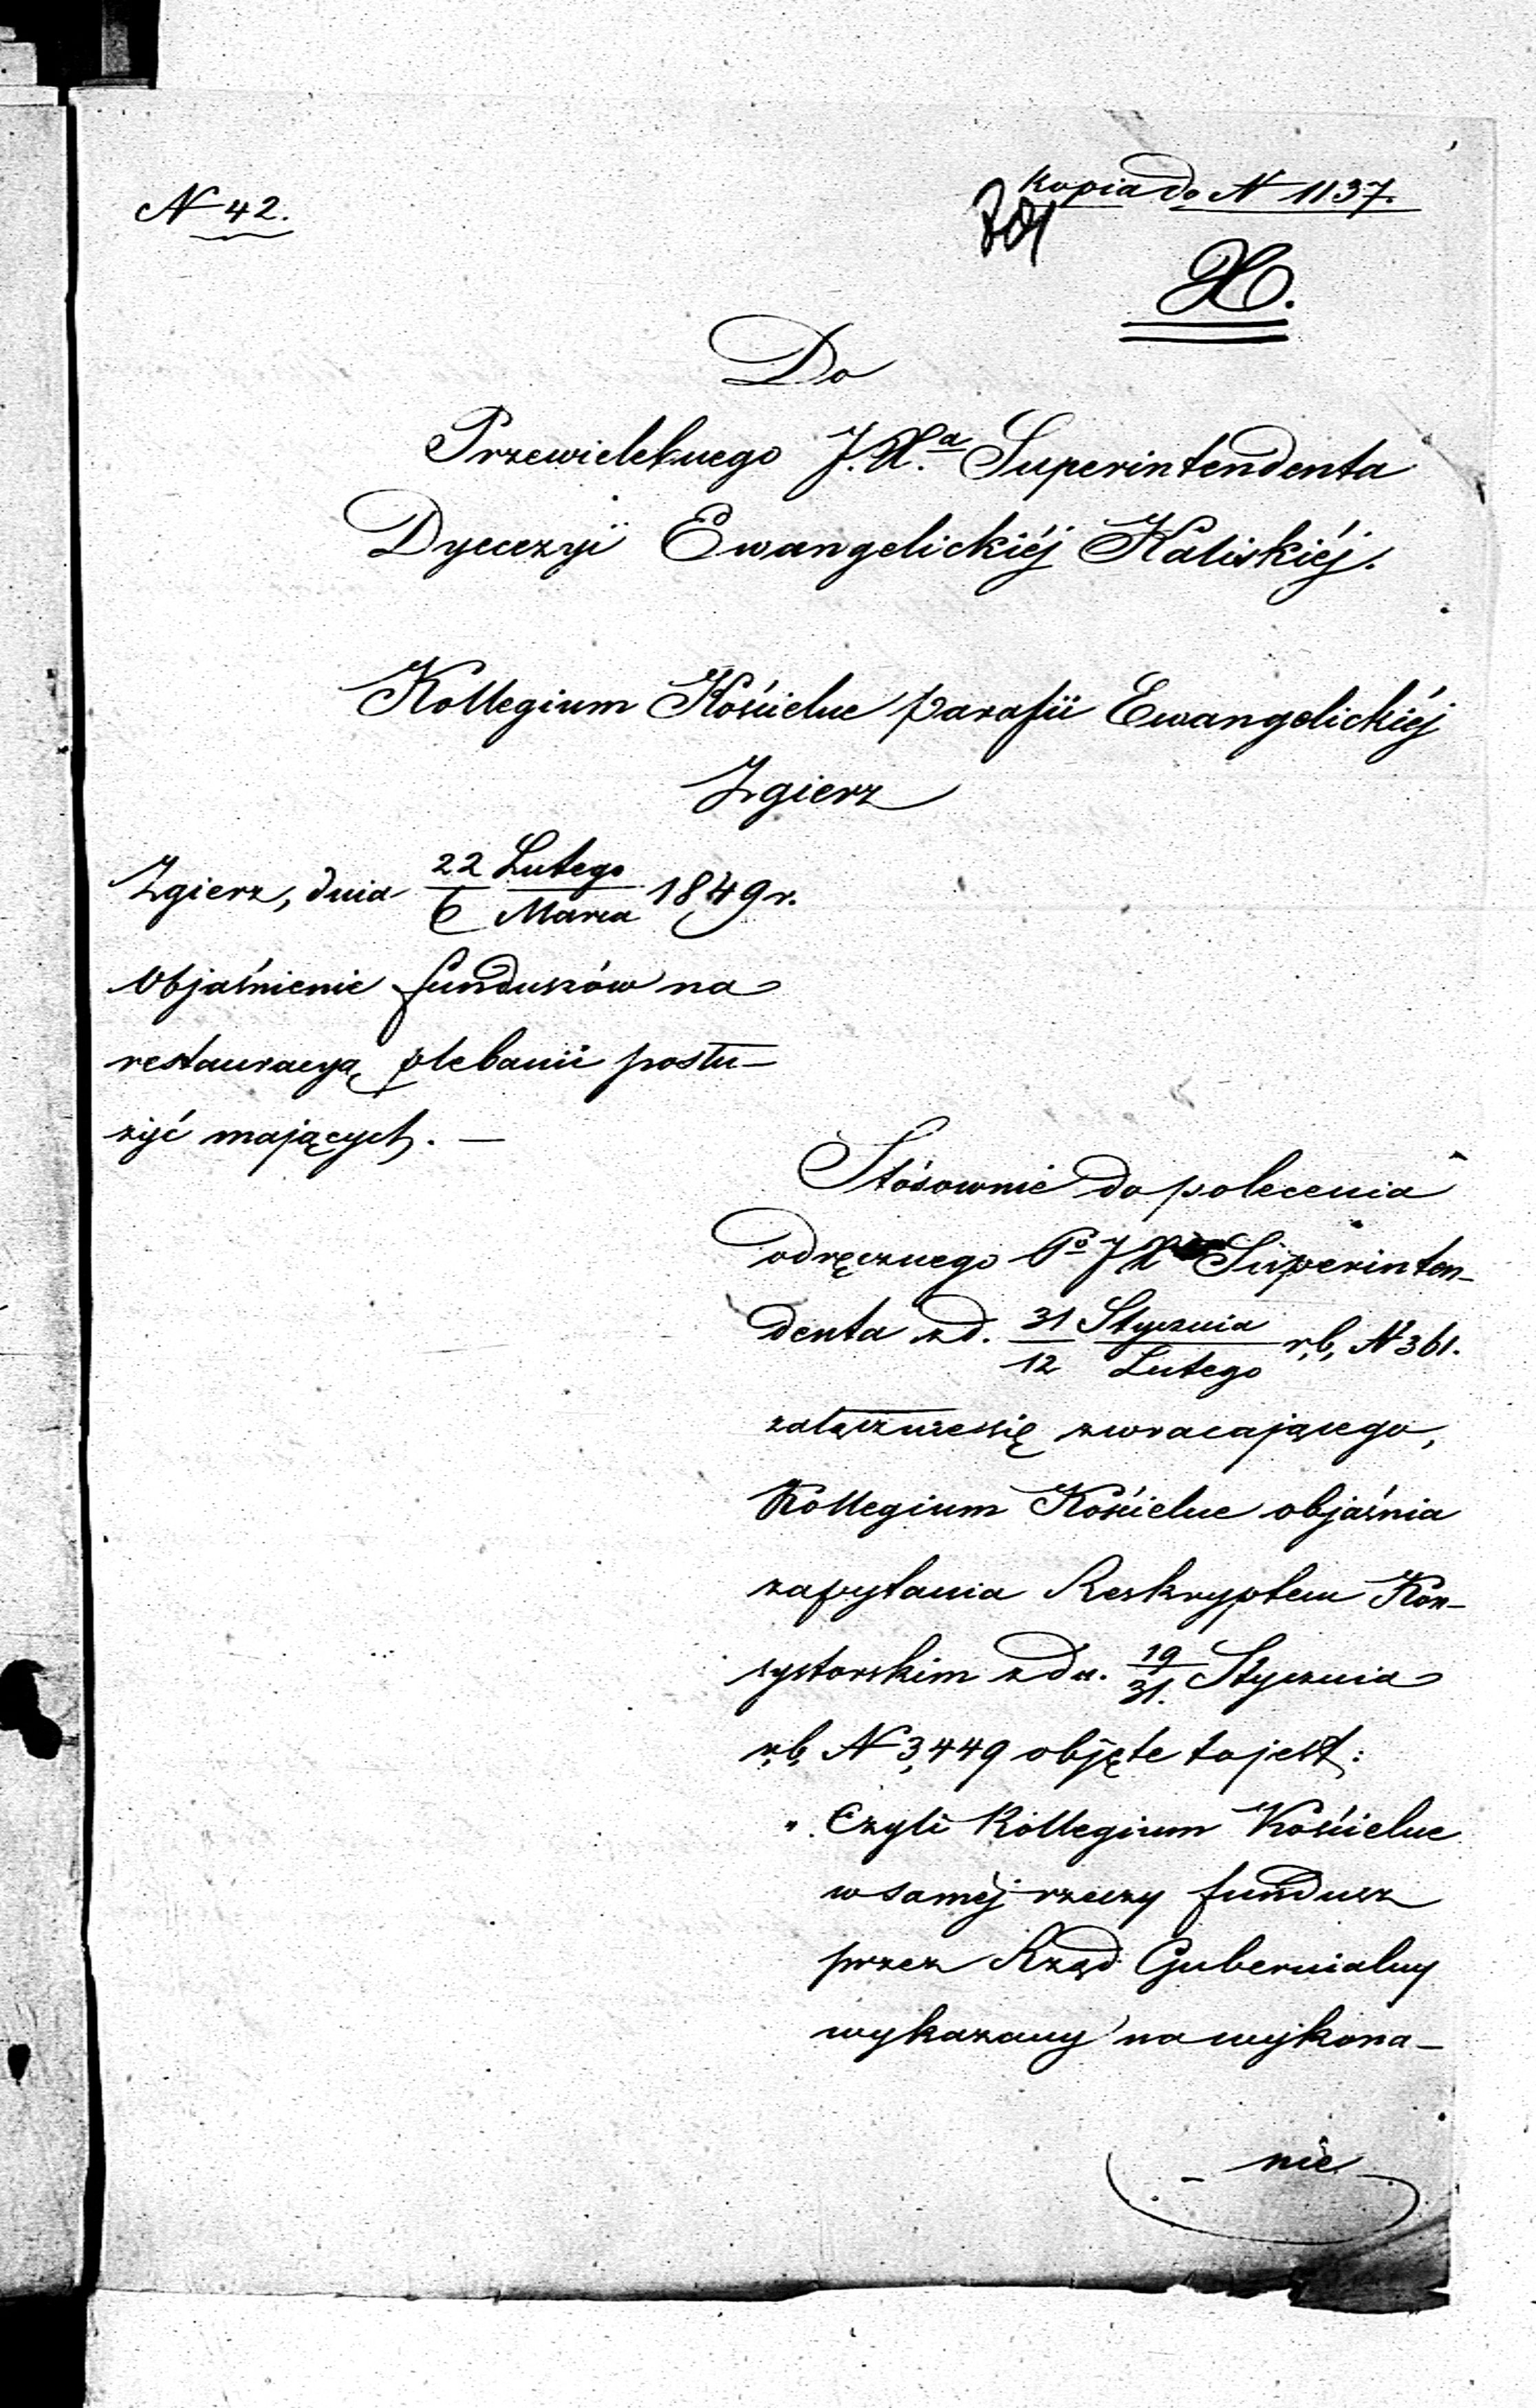 N 42.
Kopia do N 1137.
201
H.
Do
Przewielebnego J. X.ª Superintendenta
Dyecezyi Ewangelickiéj Kaliskiéj.
Kollegium Kościelne parafii Ewangelickiéj
Zgierz
Zgierz, dnia 22 Lutego / 6 Marca 1849 r.
Objaśnienie funduszów na
restauracyą plebanii posłu-
żyć mających. —
Stósownie do polecenia
odręcznego Pº J X Superinten-
denta z d. 31 Stycznia / 12 Lutego r, b, N 361.
załącznie się zwracającego,
Kollegium Kościelne objaśnia
zapytania Reskryptem Kon-
systorskim z dn. 19/31. Stycznia
r, b, N 3,449 objęte to jest:
„ Czyli Kollegium Kościelne
w saméj rzeczy fundusz
przez Rząd Gubernialny
wykazany na wykona-
- nie